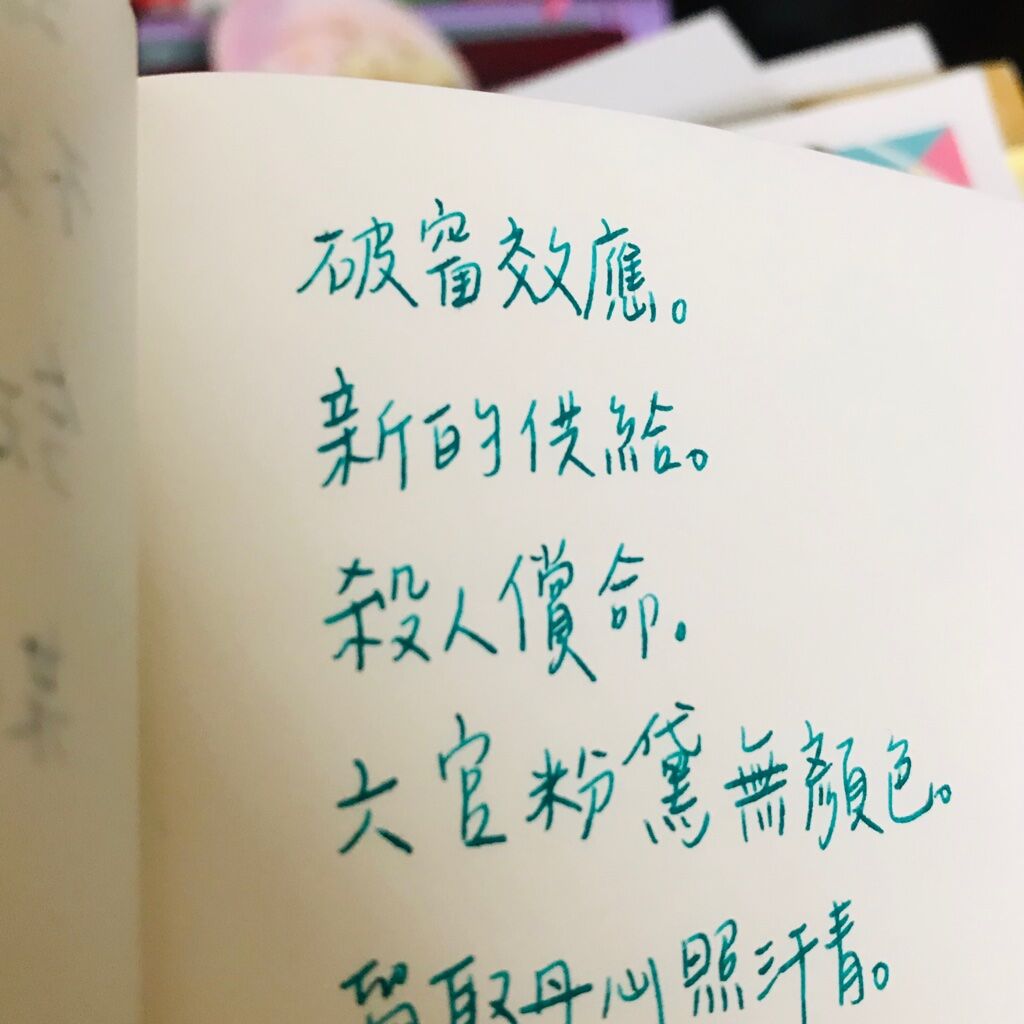 破窗效應。
新的供給。
殺人償命。
六宮粉黛無顏色。
留取丹心照汗青。